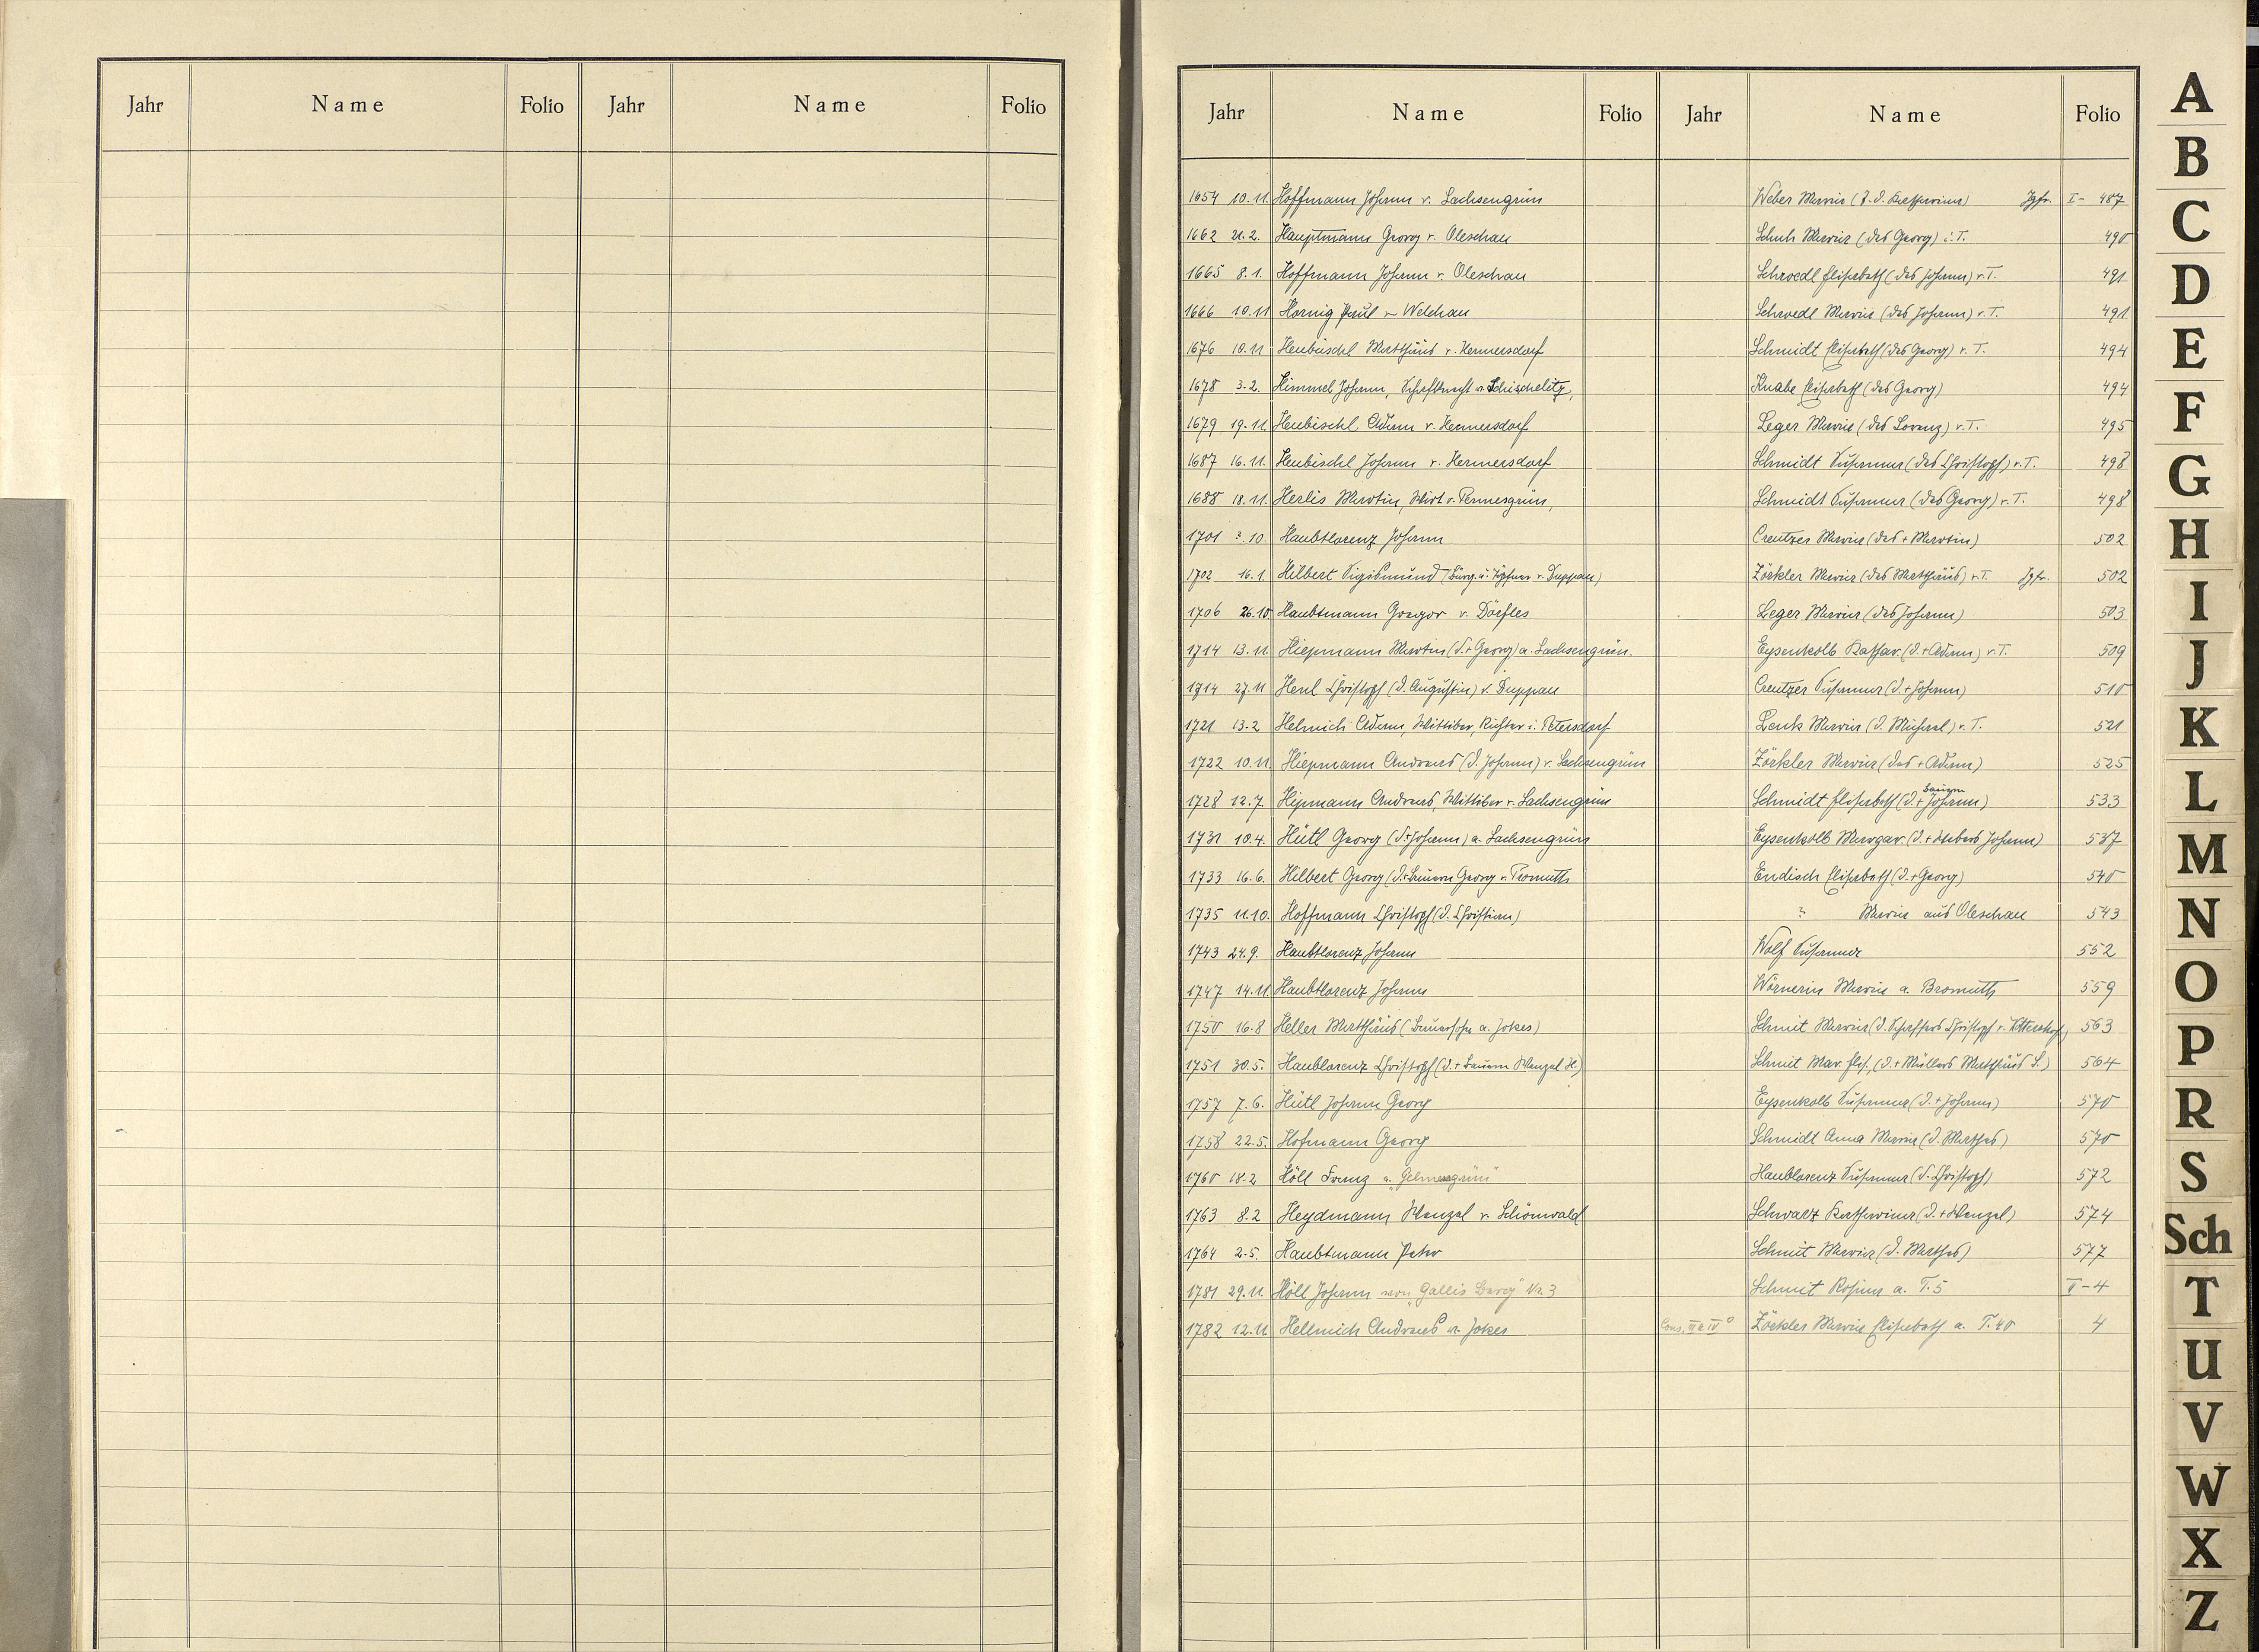 Jahr Name Folio Jahr Name Folio
Jahr Name Folio Jahr Name Folio
1654 10.11. Hoffmann Johann v. Sachsengrün Weber Maria (T. d. Katharina) Jgfr. I- 487
1662 21.2. Hauptmann Georg v. Oleschau Schuh Maria (des Georg) i. T. 490
1665 8.1. Hoffmann Johann v. Oleschau Schroedl Elisabeth (des Johann) v. T. 491
1666 10.11 Hornig Paul v Welchau Schroedl Maria (des Johann) v. T. 491
1676 10.11 Heubischl Matthäus v. Hermersdorf Schmidt Elisabeth (des Georg) v. T. 494
1678 3.2. Himmel Johann, Schafknecht v. Schischelitz, Knabe Elisabeth (des Georg) 494
1679 19.11. Heubischl Adam v. Hermersdorf Leger Maria (des Lorenz) v. T. 495
1687 16.11. Heubischl Johann v. Hermersdorf Schmidt Susanna (des Christoph) v. T. 498
1688 18.11. Herlis Martin, Wirt v. Permesgrün, Schmidt Susanna (des Georg) v. T. 498
1701 3.10. Haubtlorenz Johann Creutzer Maria (des + Martin) 502
1702 16.1. Hilbert Sigismund (Bürg. u. Töpfner v. Duppau) Zörkler Maria (des Matthäus) v. T. Jgfr. 502
1706 26.10 Haubtmann Gregor v. Dörfles Leger Maria (des Johann) 503
1714 13.11. Hiepmann Martin (d. + Georg) a. Sachsengrün. Eysenkolb Kathar. (d. + Adam) v. T. 509
1714 27.11 Henl Christoph (d. Augustin) v. Duppau Creutzer Susanna (d. + Johann) 510
1721 13.2 Helmich Adam, Wittiber, Richter i. Petersdorf Lenk Maria (d. Michael) v. T. 521
1722 10.11. Hiepmann Andreas (d. Johann) v. Sachsengrün Zörkler Maria (des + Adam) 525
1728 12.7. Hipmann Andreas, Wittiber v. Sachsengrün Schmidt Elisabeth (d. + Bauern Johann) 533
1731 10.4. Hütl Georg (d. + Johann) a. Sachsengrün Eysenkolb Margar. (d. + Webers Johann) 537
1733 16.6. Hilbert Georg (d. + Bauern Georg v. Promuth Endisch Elisabeth (d. + Georg) 540
1735 11.10. Hoffmann Christoph (d. Christian) ? Maria aus Oleschau 543
1743 24.9. Haubtlorenz Johann Wolf Susanna 552
1747 14.11. Haubtlorenz Johann Wörnerin Maria a. Bromuth 559
1750 16.8 Heller Matthäus (Bauerssohn a. Jokes) Schmit Maria (d. Schaffers Christoph v. 563
1751 30.5. Haublorenz Christoph (d. + Bauern Wenzel H.) Schmit Mar. Elis. (d. + Müllers Matthäus S.) 564
1757 7.6. Hütl Johann Georg Eysenkolb Susanna (d. + Johann) 570
1758 22.5. Hofmann Georg Schmidt Anna Maria (d. Mathes) 570
1760 18.2 Höll Franz a. "Gelmesgrün" Haublorenz Susanna (d. Christoph) 572
1763 8.2 Heydmann Wenzel v. Schönwald Schwarz Katharina (d. + Wenzel) 574
1764 2.5. Haubtmann Peter Schmit Maria (d. Mathes) 577
1781 29.11. Höll Johann von "Gallis Berg" Nr. 3 Schmit Rosina a. T. 5 II-4
1782 12.11. Hellmich Andreas v. Jokes Cons. III & IV° Zörkler Maria Elisabeth a. T. 40 4
A
B
C
D
E
F
G
H
I
J
K
L
M
N
O
P
R
S
Sch
T
U
V
W
X
Z